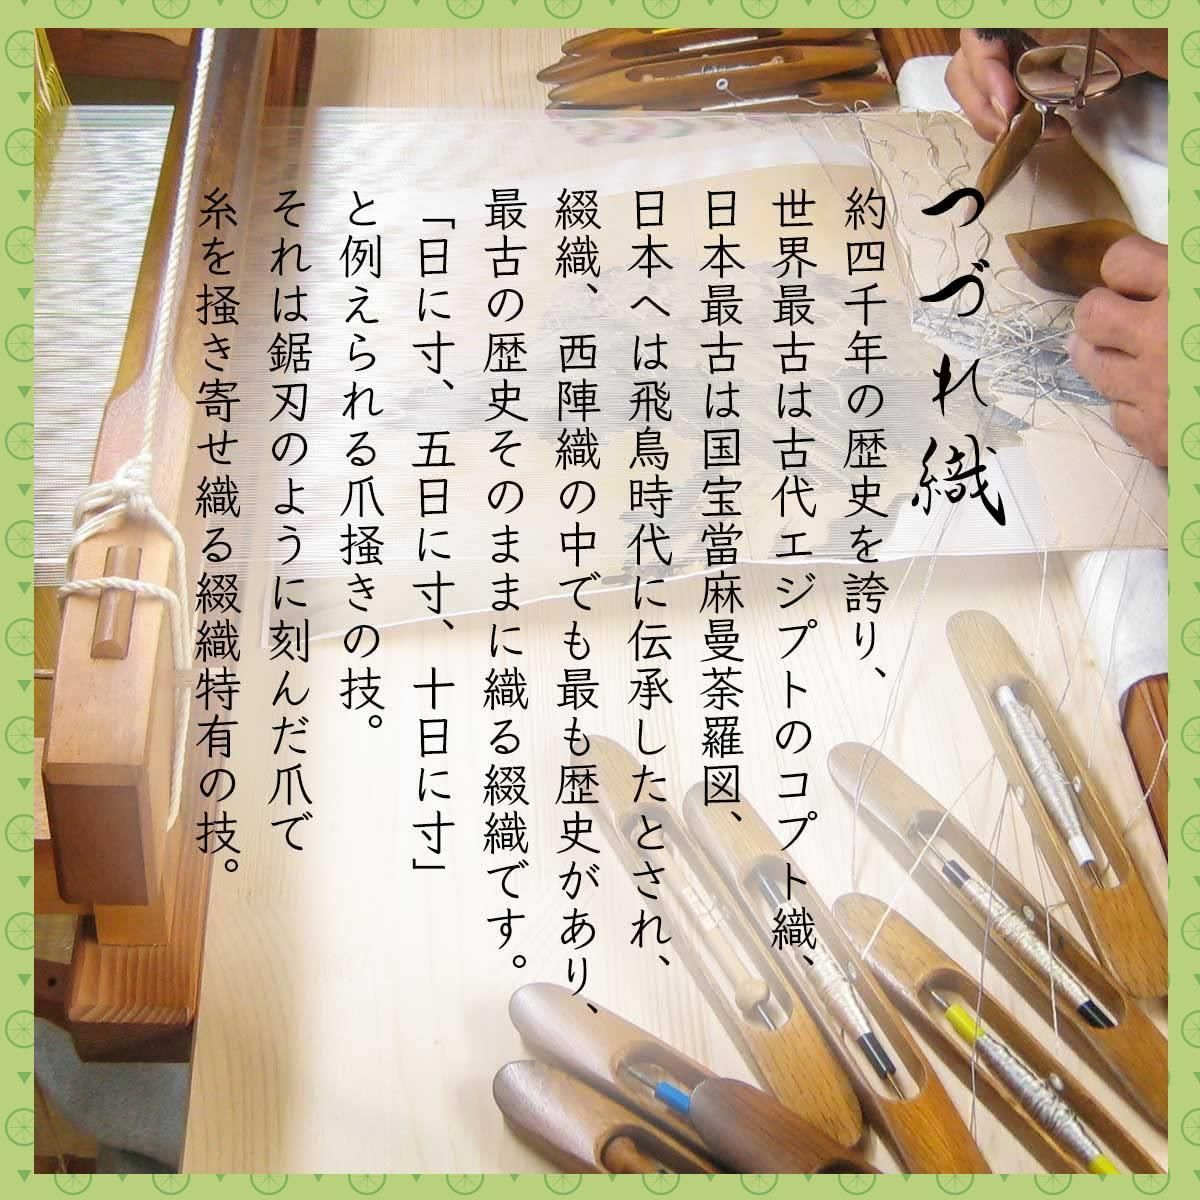 つづれ織
約四千年の歴史を誇り、
世界最古は古代エジプトのコプト織、
日本最古は国宝當麻曼荼羅図、
日本へは飛鳥時代に伝承したとされ、
綴織、西陣織の中でも最も歴史があり、
最古の歴史そのままに織る綴織です。
「日に寸、五日に寸、十日に寸」
と例えられる爪掻きの技。
それは鋸刃のように刻んだ爪で
糸を掻き寄せ織る綴織特有の技。